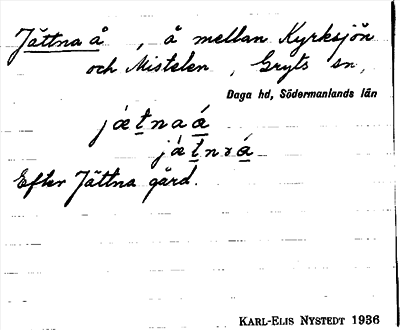 Jättna å , å mellan Kyrksjön
och Mistelen , Gryts sn,
Daga hd, Södermanlands län
jǽtnaá
jǽtnɜá
Efter Jättna gård.
KARL-ELIS NYSTEDT 1936